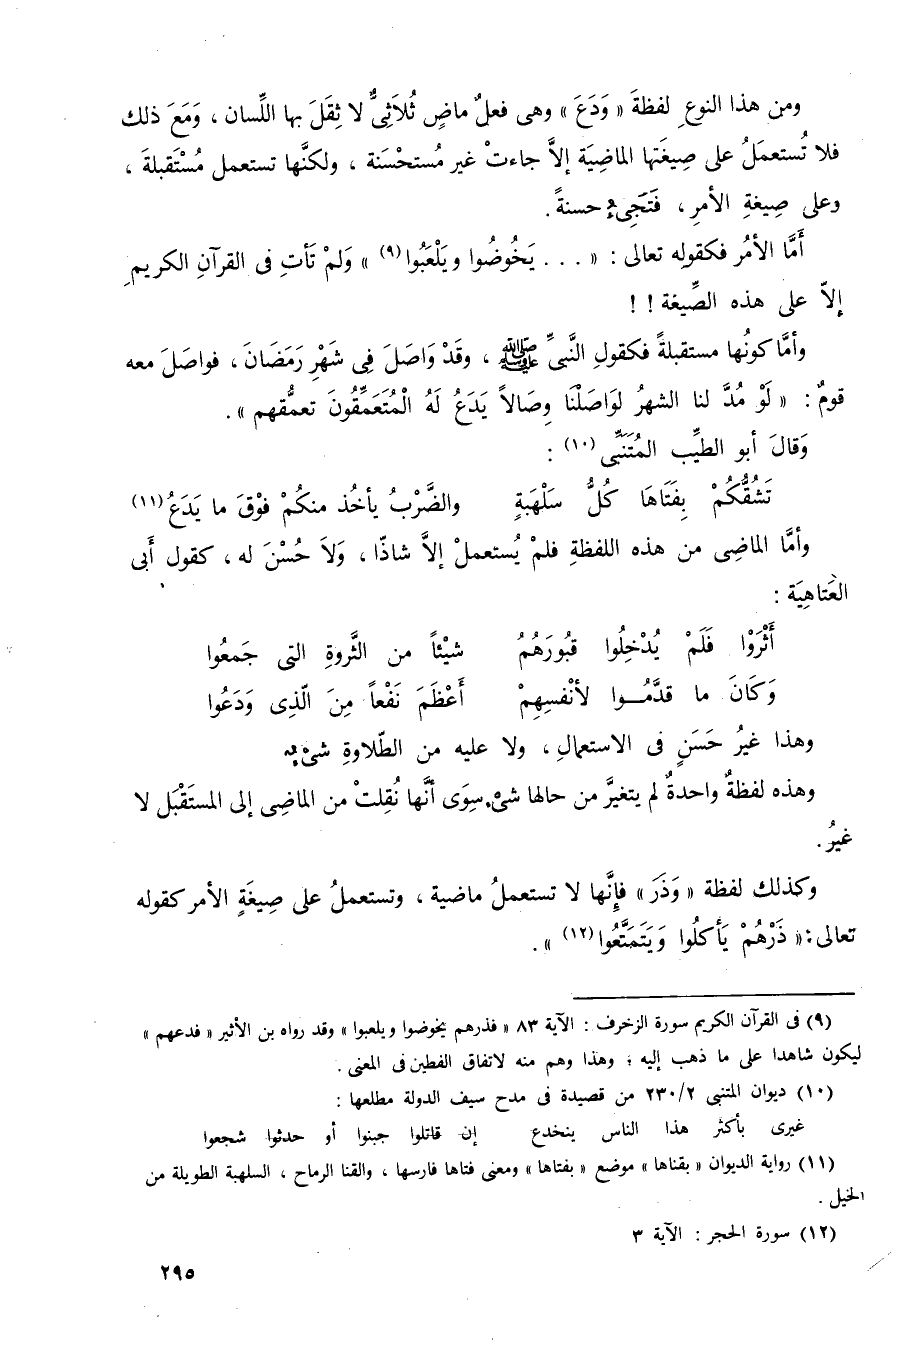 ومن هذا النوعِ لفظةَ « وَدَعَ » وهى فعلٌ ماضٍ ثُلاَثِىٌّ لا ثِقَلَ بها اللِّسان ، وَمَعَ ذلك
فلا تُستعمَلُ على صِيغَتِها الماضِيَة إلاَّ جاءتْ غير مُستحْسَنة ، ولكنَّها تستعمل مُسْتَقبلةَ ،
وعلى صِيغةِ الأمرِ ، فَتَجِىءُ حسنةً .
أَمَّا الأمُر فكقولِه تعالى : « . . . يَخُوضُوا ويَلْعَبُوا (٩) » وَلمْ تَأتِ فى القرآنِ الكريمِ
إلاّ على هذه الصِّيغة ! !
وأمَّا كونُها مستقبلةً فكقولِ النَّبىِّ ﷺ ، وقَدْ وَاصَلَ فِى شَهْرِ رَمَضَانَ ، فواصَلَ معه
قومٌ : « لَوْ مُدَّ لنا الشهرُ لوَاصَلْنَا وِصَالاً يَدَعُ لَهُ الْمُتَعَمِّقُونَ تعمُّقهم » .
وَقالَ أبو الطيِّب المُتَنَبِّى (١٠) :
تَشُقُّكُمْ بِفَتَاهَا كُلُّ سَلْهَبةٍ والضَّرْبُ يأخُذ منكُمْ فوْقَ ما يَدَعُ (١١)
وأمَّا الماضِى من هذه اللفظةِ فلمْ يُستعملْ إلاَّ شاذّا ، وَلاَ حُسْنَ له ، كقول أَبى
العَتاهِيَة :
أَثْرَوْا فَلَمْ يُدْخِلُوا قبُورَهُمُ شيْئاً من الثَّروةِ التى جَمعُوا
وَكَانَ ما قدَّمُــوا لأنْفسِهِمْ أَعْظَمَ نَفْعاً مِنَ الّذِى وَدَعُوا
وهذا غيرُ حَسَنٍ فى الاستعمالِ ، ولا عليه من الطّلاوةِ شىْءٌ
وهذه لفظةٌ واحدةٌ لم يتغيرَّ من حالها شىْء سِوَى أنَّها نُقِلتْ من الماضِى إلى المستَقْبَل لا
غيرُ .
وكذلك لفظة « وَذَرَ » فإنَّها لا تستعملُ ماضية ، وتستعملُ على صِيغَةٍ الأمر كقوله
تعالى : « ذَرْهُمْ يَأكلُوا وَيَتَمَتَّعُوا (١٢) » .
(٩) فى القرآن الكريم سورة الزخرف : الآية ٨٣ « فذرهم يخوضوا ويلعبوا » وقد رواه بن الأثير « فدعهم »
ليكون شاهدا على ما ذهب إليه ؛ وهذا وهم منه لاتفاق الفطين فى المعنى .
(١٠) ديوان المتنبى ٢٣٠/٢ من قصيدة فى مدح سيف الدولة مطلعها :
غيرى بأكثر هذا الناس ينخدع إن قاتلوا جبنوا أو حدثوا شجعوا
(١١) رواية الديوان « بقناها » موضع « بفتاها » ومعنى فتاها فارسها ، والقنا الرماح ، السلهبة الطويلة من
الخيل .
(١٢) سورة الحجر : الآية ٣
٢٩٥